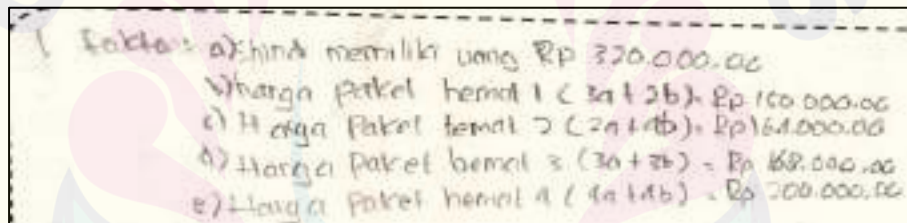 1 Fakta : a) Shindi memiliki uang Rp 320.000.00
b) harga paket hemat 1 (3a + 2b) = Rp 160.000.00
c) Harga Paket hemat 2 (2a + 4b) = Rp 164.000.00
d) Harga Paket hemat 3 (3a + 3b) = Rp 168.000.00
e) Harga Paket hemat 4 (4a + 4b) = Rp 200.000.00